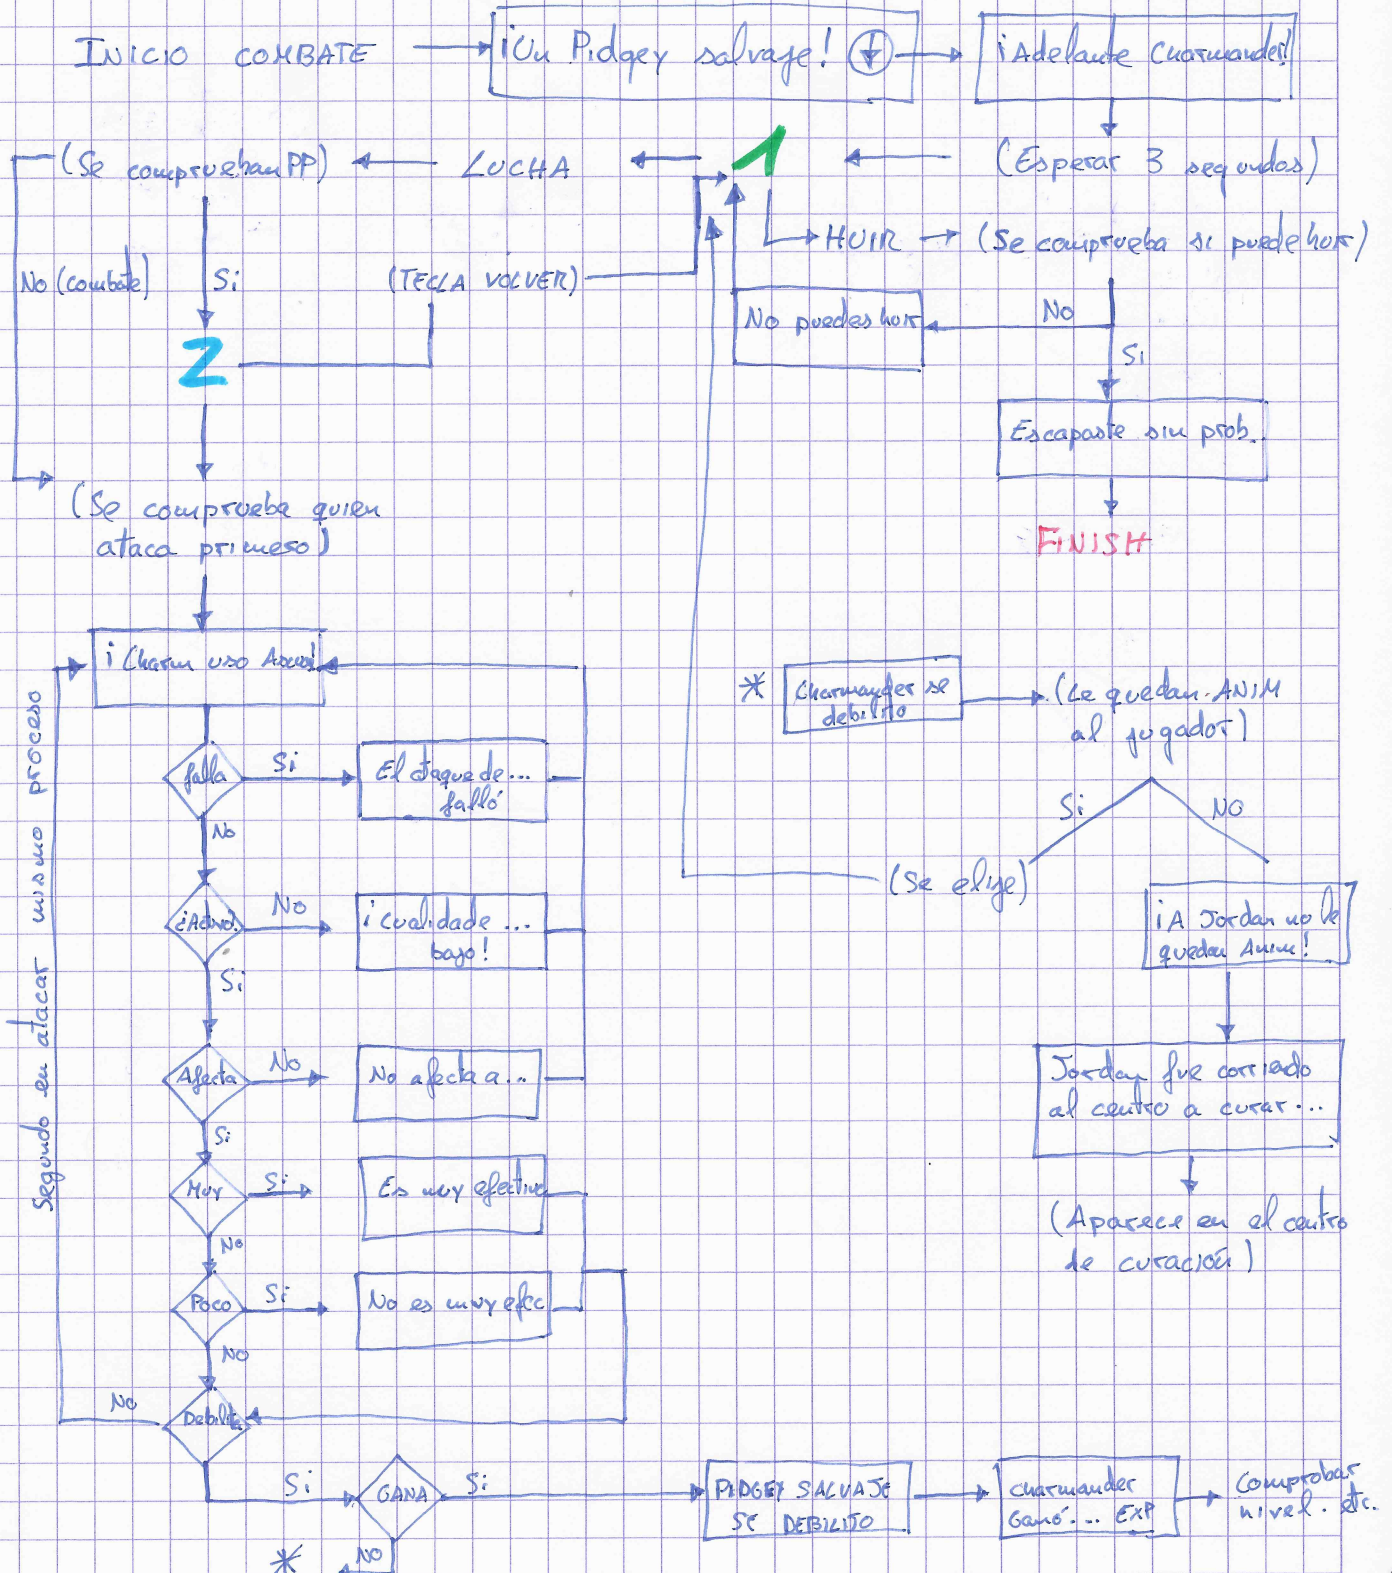 INICIO COMBATE
¡Un Pidgey salvaje!
¡Adelante Charmander!
(Se comprueban PP)
LUCHA
1
(Esperar 3 segundos)
HUIR
(Se comprueba si puede huir)
No (combate)
Si
(TECLA VOLVER)
No puedes huir
No
Si
2
Escapaste sin prob..
FINISH
(Se comprueba quien
ataca primero)
¡Charm uso Ascuas!
Segundo en atacar mismo proceso
falla
Si
El ataque de...
falló
No
No
¡Cualidade ...
bajo!
Si
Afecta
No
No afecta a...
Si
Muy
Si
Es muy efectivo
No
Poco
Si
No es muy efec
No
Debilita
No
Si
GANA
Si
PIDGEY SALVAJE
SE DEBILITO
Charmander
Ganó... EXP
Comprobar
nivel. etc.
*
NO
*
Charmander se
debilito
(Le quedan ANIM
al jugador)
Si
NO
(Se elije)
¡A Jordan no le
quedan Anim!
Jordan fue corriendo
al centro a curar...
(Aparece en el centro
de curación)